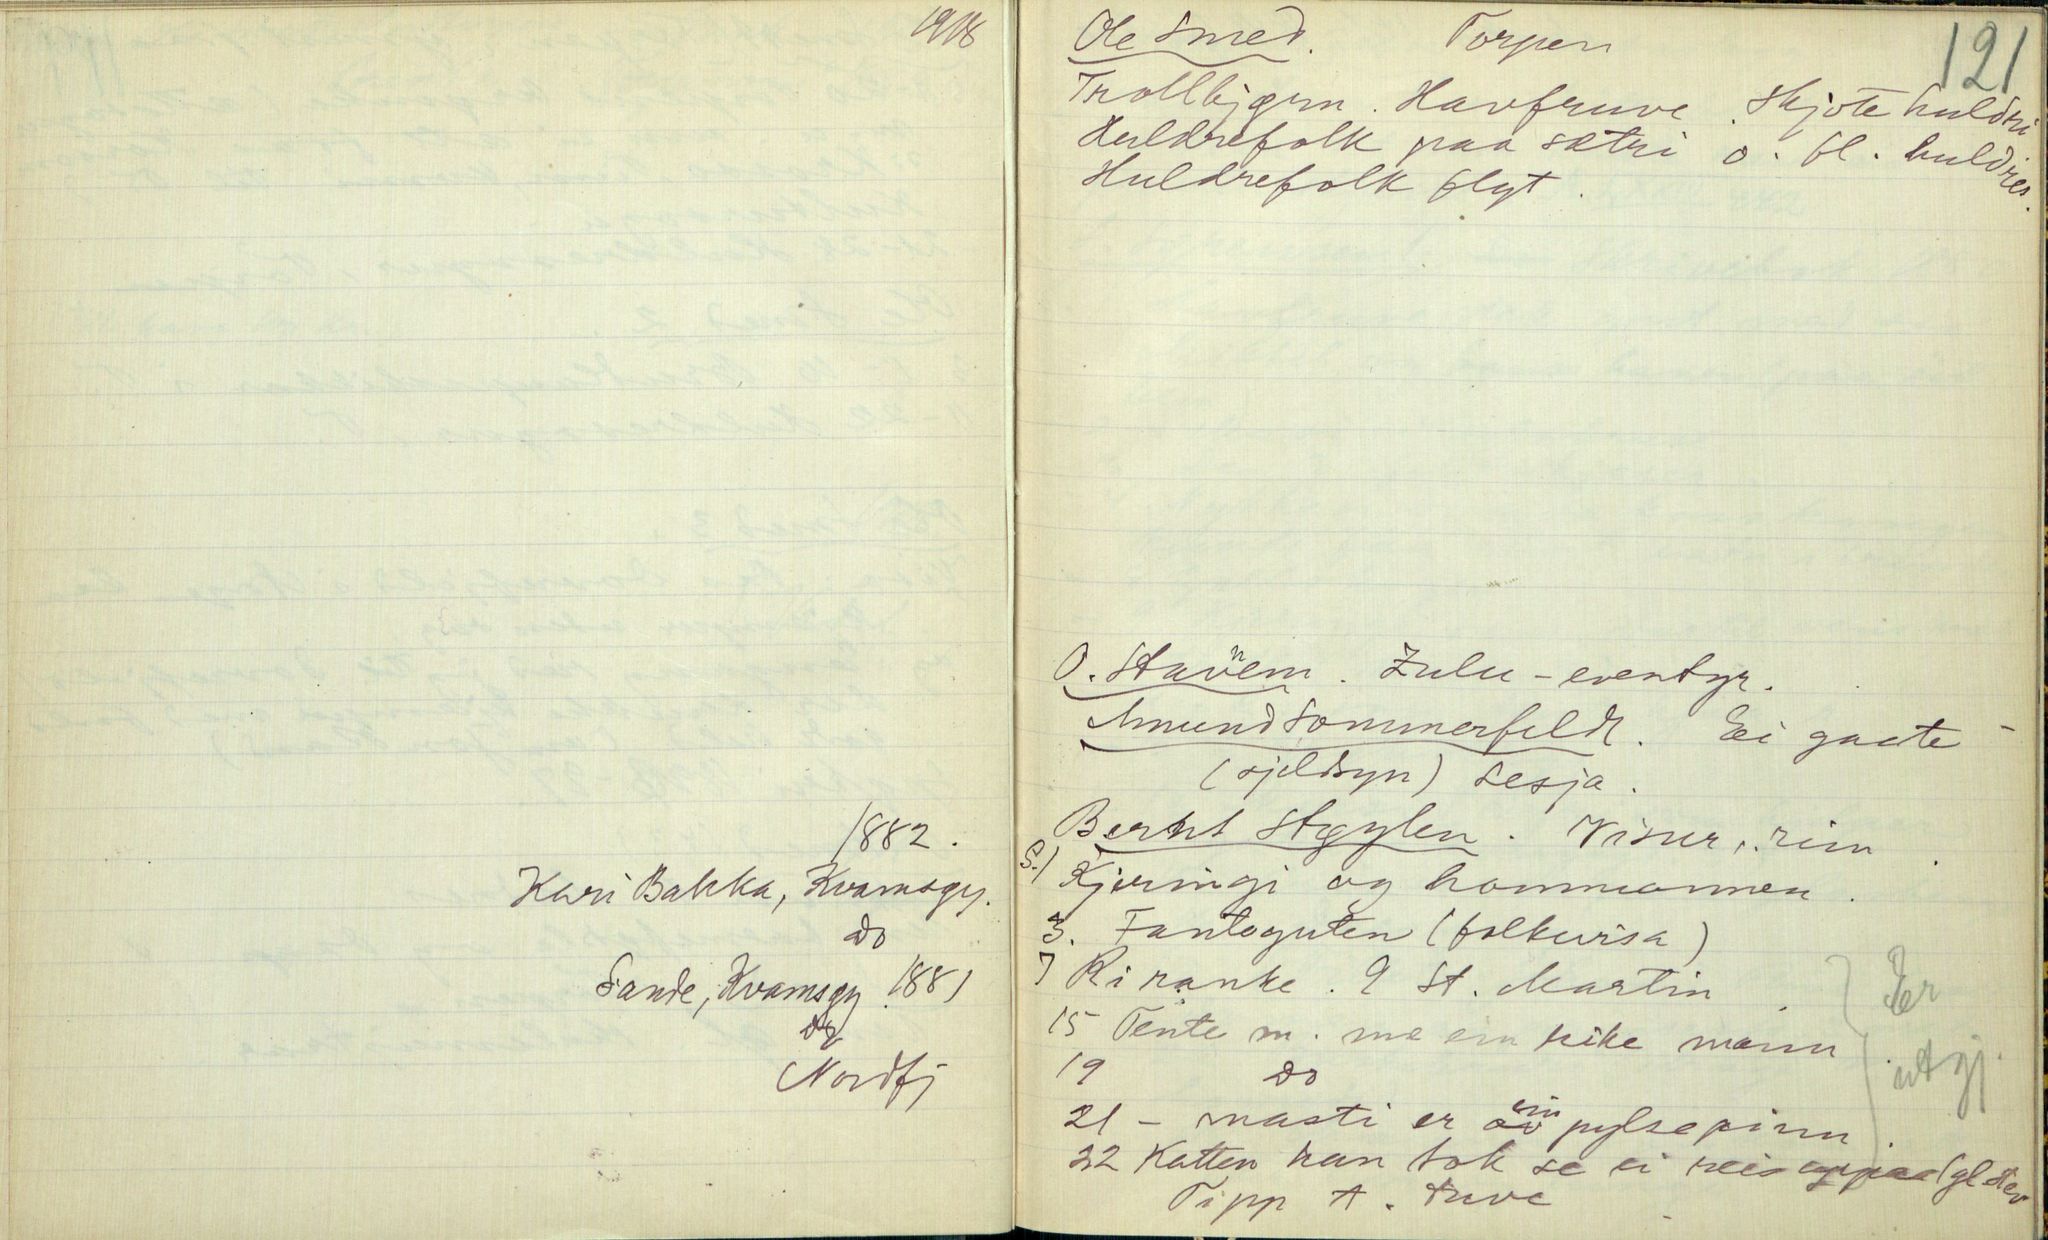 1918
1882.
Kari Bakka, Kvamsøy.
do
Sande, Kvamsøy 1881
do
Nordfj
121
Ole Smed. Torpen
Trollbjørn. Havfruve. Skjote huldri
Huldrefolk paa sætri o. fl. huldres.
Huldrefolk flyt.
O. Stavnem. Zulu-eventyr.
Amund Sommerfeldt. Ei gaate -
(sjeldsyn) Lesja.
Bernt Støylen. Visur, rim.
S.1 Kjeringi og hommannen.
3. Fanteguten (folkevisa)
7 Ri ranke. 9 St. Martin
15 Tente m. me ein rike mann.
19 do
21 - masti er ein pylsepinn.
22 Katten han tok se ei reis
Tipp t. tuve
Er
utgj.